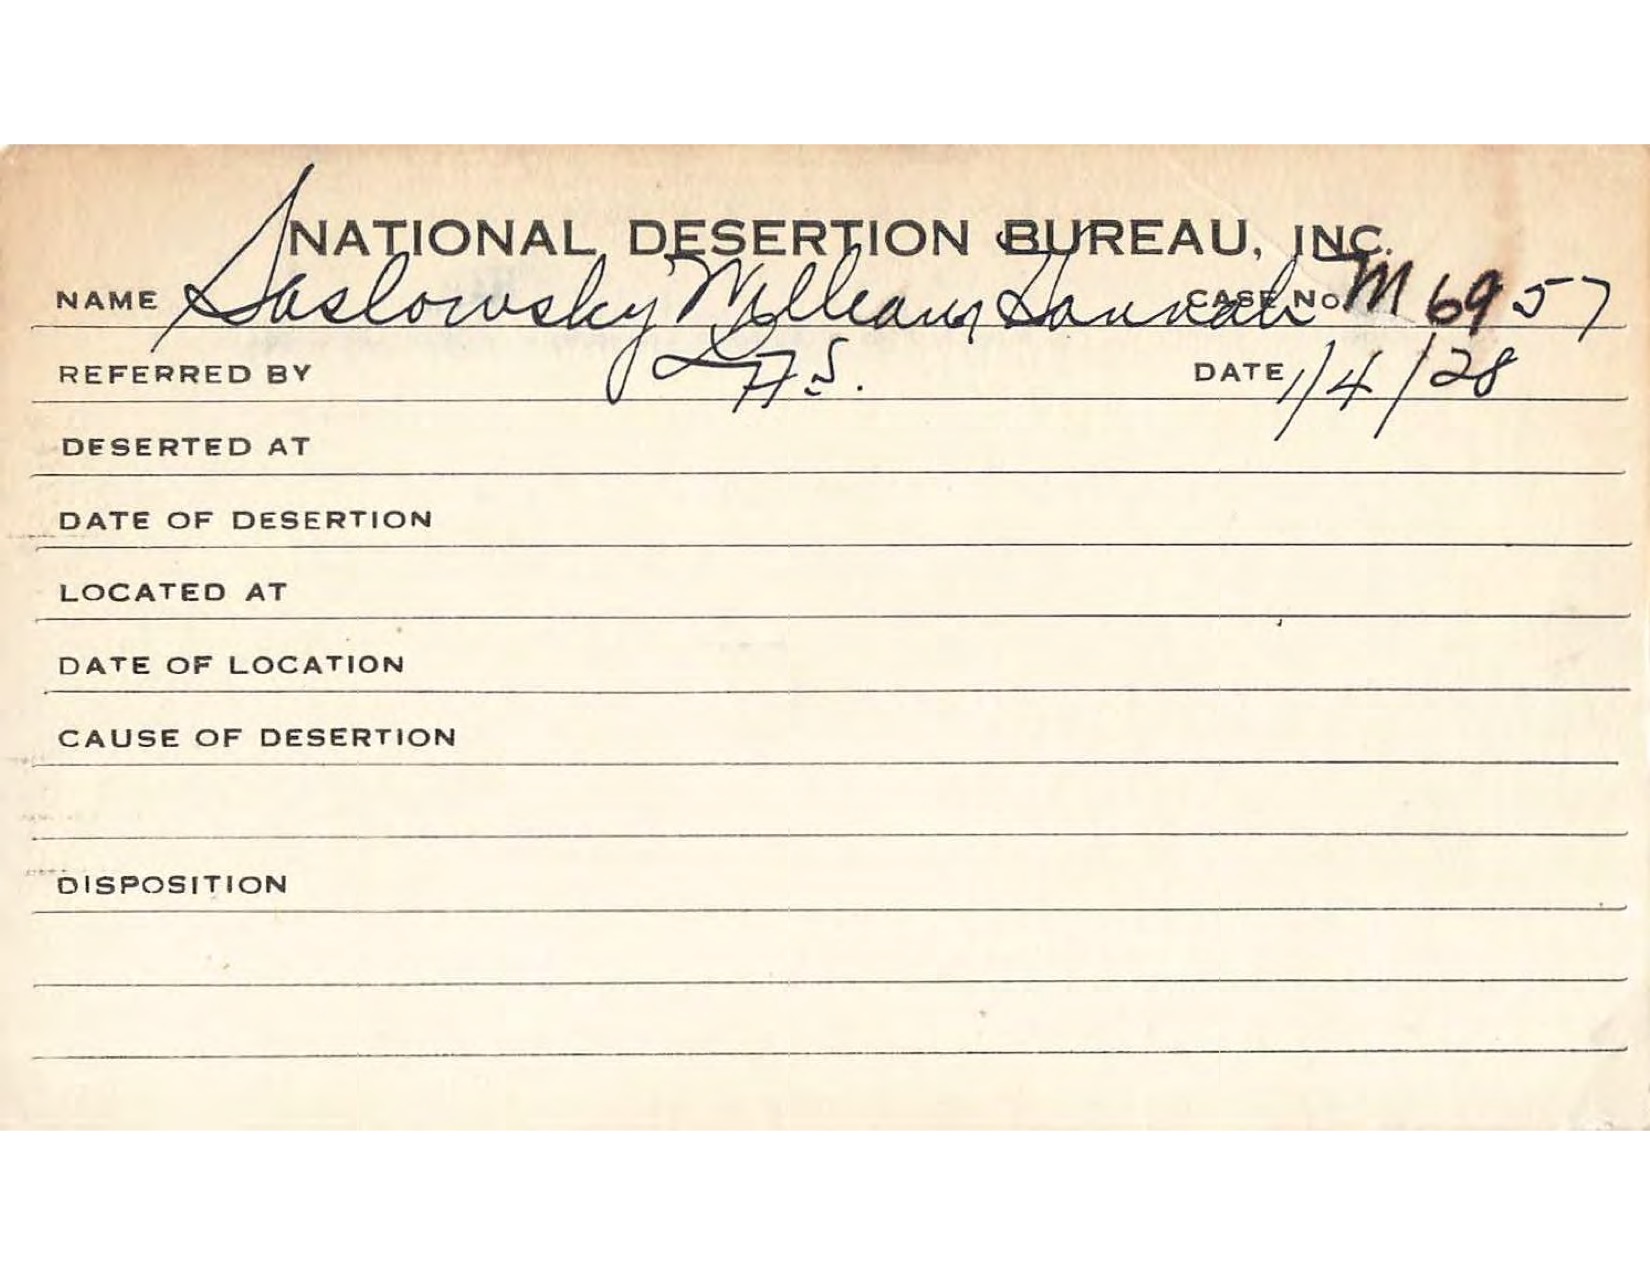 NATIONAL DESERTION BUREAU, INC.
NAME Saslowsky William Hannah CASE NO. M 6957
REFERRED BY F.S. DATE 1/4/28
DESERTED AT
DATE OF DESERTION
LOCATED AT
DATE OF LOCATION
CAUSE OF DESERTION
DISPOSITION